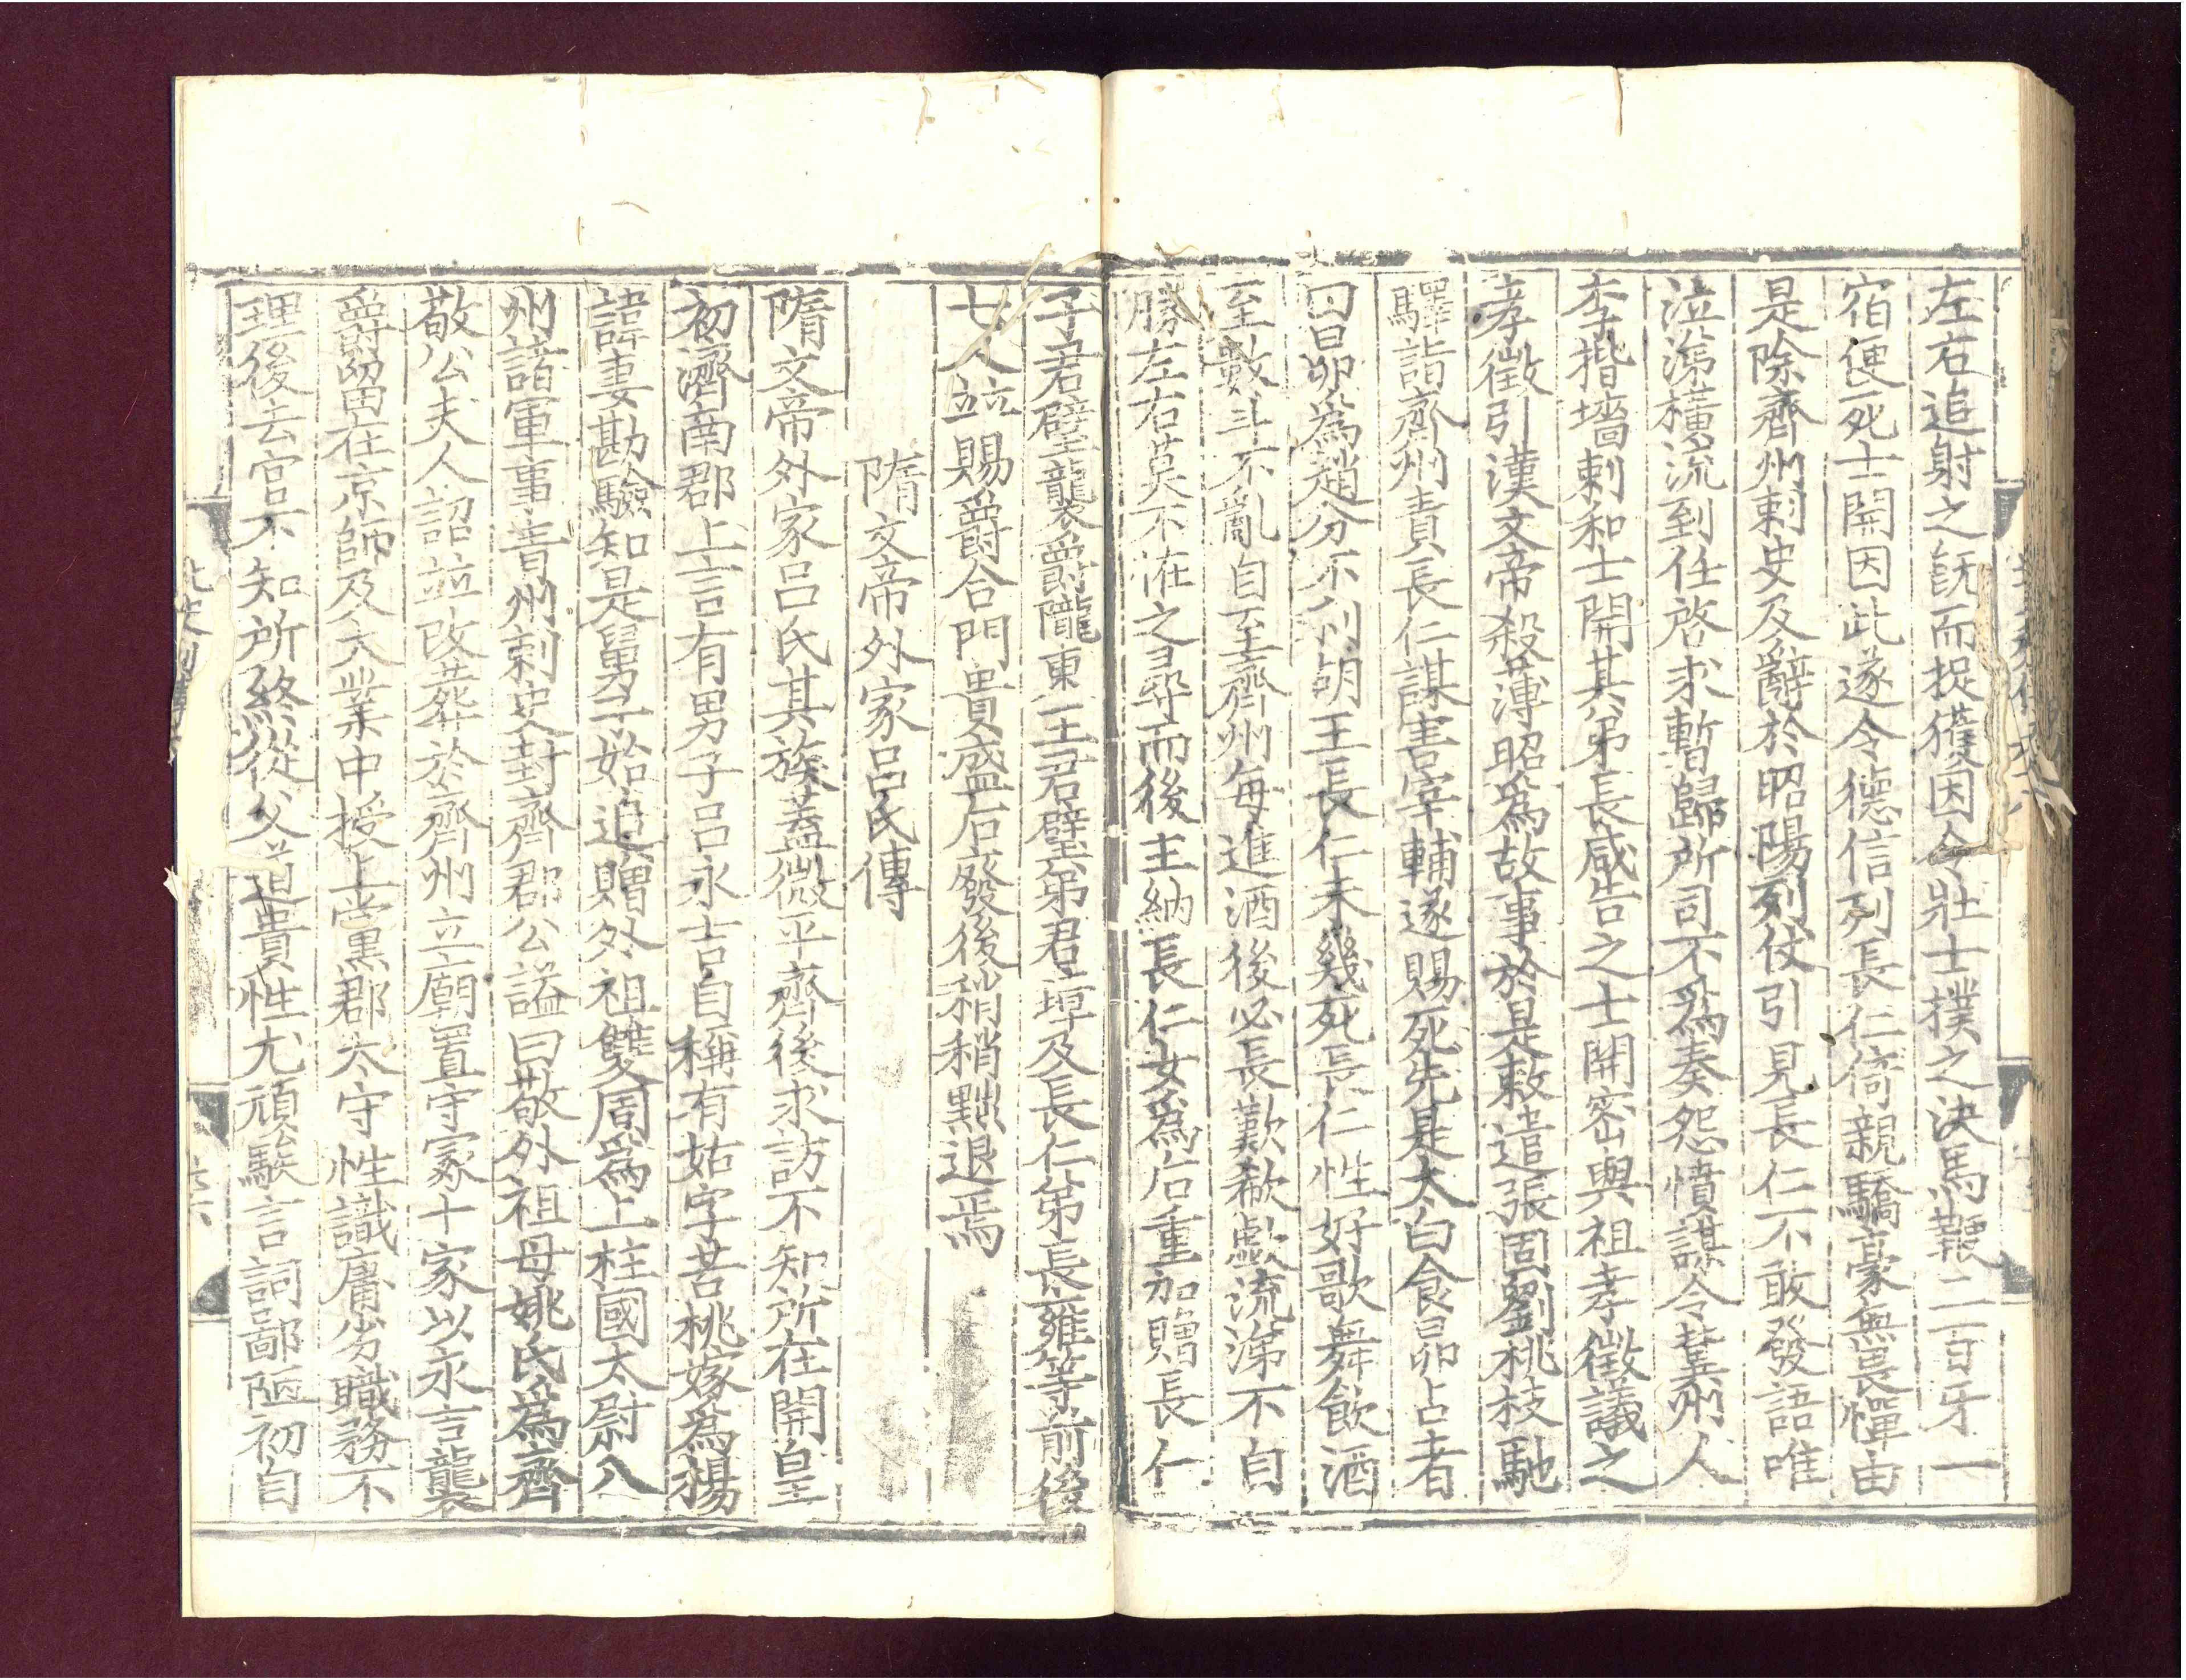 左右追射之旣而捉獲因令壯士撲之決馬鞭二百牙一
宿便死士開因此遂令德信列長仁倚親驕豪無畏憚由
是除齊州刺史及辭於昭陽列仗引見長仁不敢發語唯
泣涕橫流到任啓求暫歸所司不爲奏怨憤謀令冀州人
李揩墻刺和士開其弟長咸告之士開密與祖孝徵議之
孝徵引漢文帝殺薄昭爲故事於是敕遣張固劉桃枝馳
驛詣齊州責長仁謀害宰輔遂賜死先是太白食昴占者
曰昴爲趙分不利胡王長仁未幾死長仁性好歌舞飲酒
至數斗不亂自至齊州每進酒後必長歎欷歔流涕不自
勝左右莫不怪之尋而後主納長仁女爲后重加贈長仁
子君璧襲爵隴東王君璧弟君璋及長仁弟長雍等前後
七人竝賜爵合門貴盛后廢後稍稍黜退焉
隋文帝外家呂氏傳
隋文帝外家呂氏其族蓋微平齊後求訪不知所在開皇
初濟南郡上言有男子呂永吉自稱有姑字苦桃嫁爲楊
諱妻勘驗知是舅子始追贈外祖雙周爲上柱國太尉八
州諸軍事青州刺史封齊郡公謚曰敬外祖母姚氏爲齊
敬公夫人詔竝改葬於齊州立廟置守冢十家以永吉襲
爵留在京師及大業中授上黨郡太守性識庸劣職務不
理後去官不知所終從父道貴性尤頑騃言詞鄙陋初自